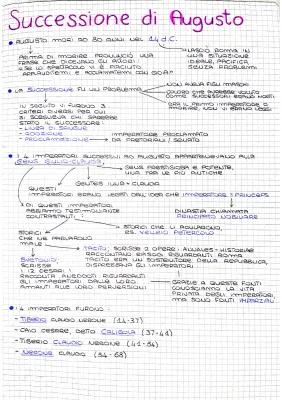 Successione di Augusto
AUGUSTO MORÌ AD 80 ANNI NEL 14 d.C.
PRIMA DI MORIRE PRONUNCIÒ UNA
FRASE CHE DICEVANO GLI ATTORI
"SE LO SPETTACOLO VI È PIACIUTO
APPLAUDITEMI E ACCLAMATEMI CON GIOIA"
LASCIÒ ROMA IN
UNA SITUAZIONE
IDEALE, PACIFICA
SENZA PROBLEMI
LA SUCCESSIONE FU UN PROBLEMA
NON AVEVA FIGLI MASCHI
COLORO CHE AVREBBE VOLUTO
COME SUCCESSORI ERANO MORTI
ERA IL PRIMO IMPERATORE A
MORIRE, NON VI ERANO LEGGI
IN SEGUITO VI FURONO 3
CRITERI DIVERSI PER CUI
SI SCEGLIEVA CHI SAREBBE
STATO IL SUCCESSORE:
- LINEA DI SANGUE
- ADOZIONE
- PROCLAMAZIONE
IMPERATORE PROCLAMATO
DA PRETORIANI / SENATO
I 4 IMPERATORI SUCCESSIVI AD AUGUSTO APPARTENEVANO ALLA
GENS GIULIO-CLAUDIA
UNA TRA LE PIÙ ANTICHE
GENTES IULIA - CLAUDIA
QUESTI
IMPERATORI ERANO LEGATI DALL'IDEA CHE IMPERATORE = PRINCEPS
DI QUESTI IMPERATORI
ABBIAMO TESTIMONIANZE
CONTRASTANTI
DINASTIA CHIAMATA
PRINCIPATO
STORICI
CHE NE PARLARONO
MALE
STORICI CHE LI ADULARONO,
ES. VELLEIO PATERCOLO
TACITO; SCRISSE 2 OPERE: ANNALES - HISTORIAE
RACCONTANO EPISODI RIGUARDANTI ROMA
TACITO ERA UN SOSTENITORE DELLA REPUBBLICA,
DISPREZZAVA GLI IMPERATORI
SVETONIO;
SCRISSE
I 12 CESARI:
RACCONTA ANEDDOTI RIGUARDANTI
GLI IMPERATORI DALLE LORO
AMANTI ALLE LORO PERVERSIONI
GRAZIE A QUESTE FONTI
CONOSCIAMO LA VITA
PRIVATA DEGLI IMPERATORI,
MA SONO FONTI IMPARZIALI
I 4 IMPERATORI FURONO:
- TIBERIO CLAUDIO NERONE (14-37)
- CAIO CESARE, DETTO CALIGOLA (37-41)
- TIBERIO CLAUDIO NERONE (41-54)
- NERONE CLAUDIO (54-68)